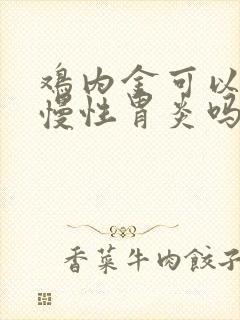 鸡内金可以
慢性胃炎吗
香菜牛肉餃子